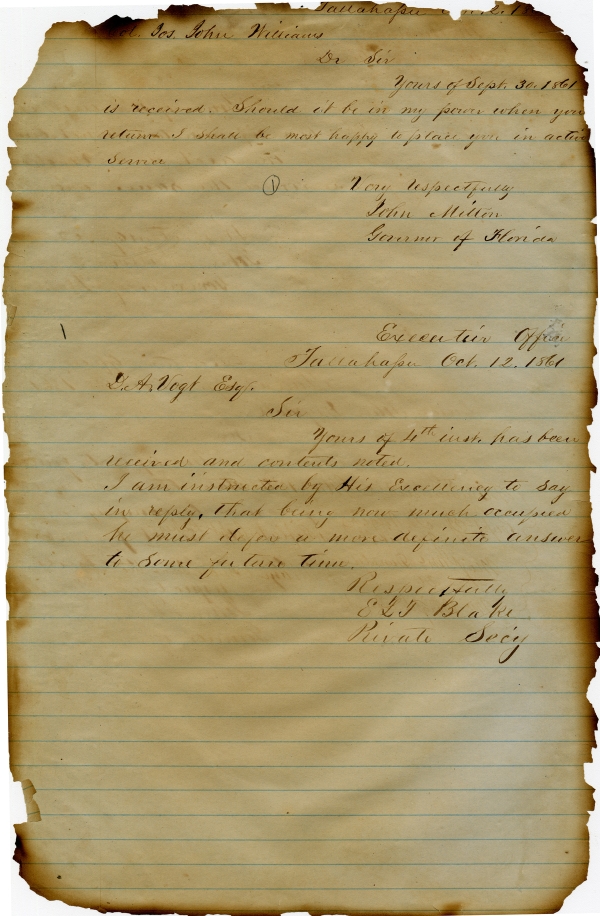 Tallahassee
Col. Jos. John Williams
Dr Sir
Yours of Sept. 30. 1861
is received. Should it be in my power when you
return I shall be most happy to place you in active
Service
① Very respectfully
John Milton
Governor of Florida
Executive Office
Tallahassee Oct. 12. 1861
D. A. Vogt Esqr.
Sir
Yours of 4th inst. has been
received and contents noted.
I am instructed by His Excellency to say
in reply, that being now much occupied
he must defer a more definite answer
to some future time.
Respectfully
Blake
Private Secy